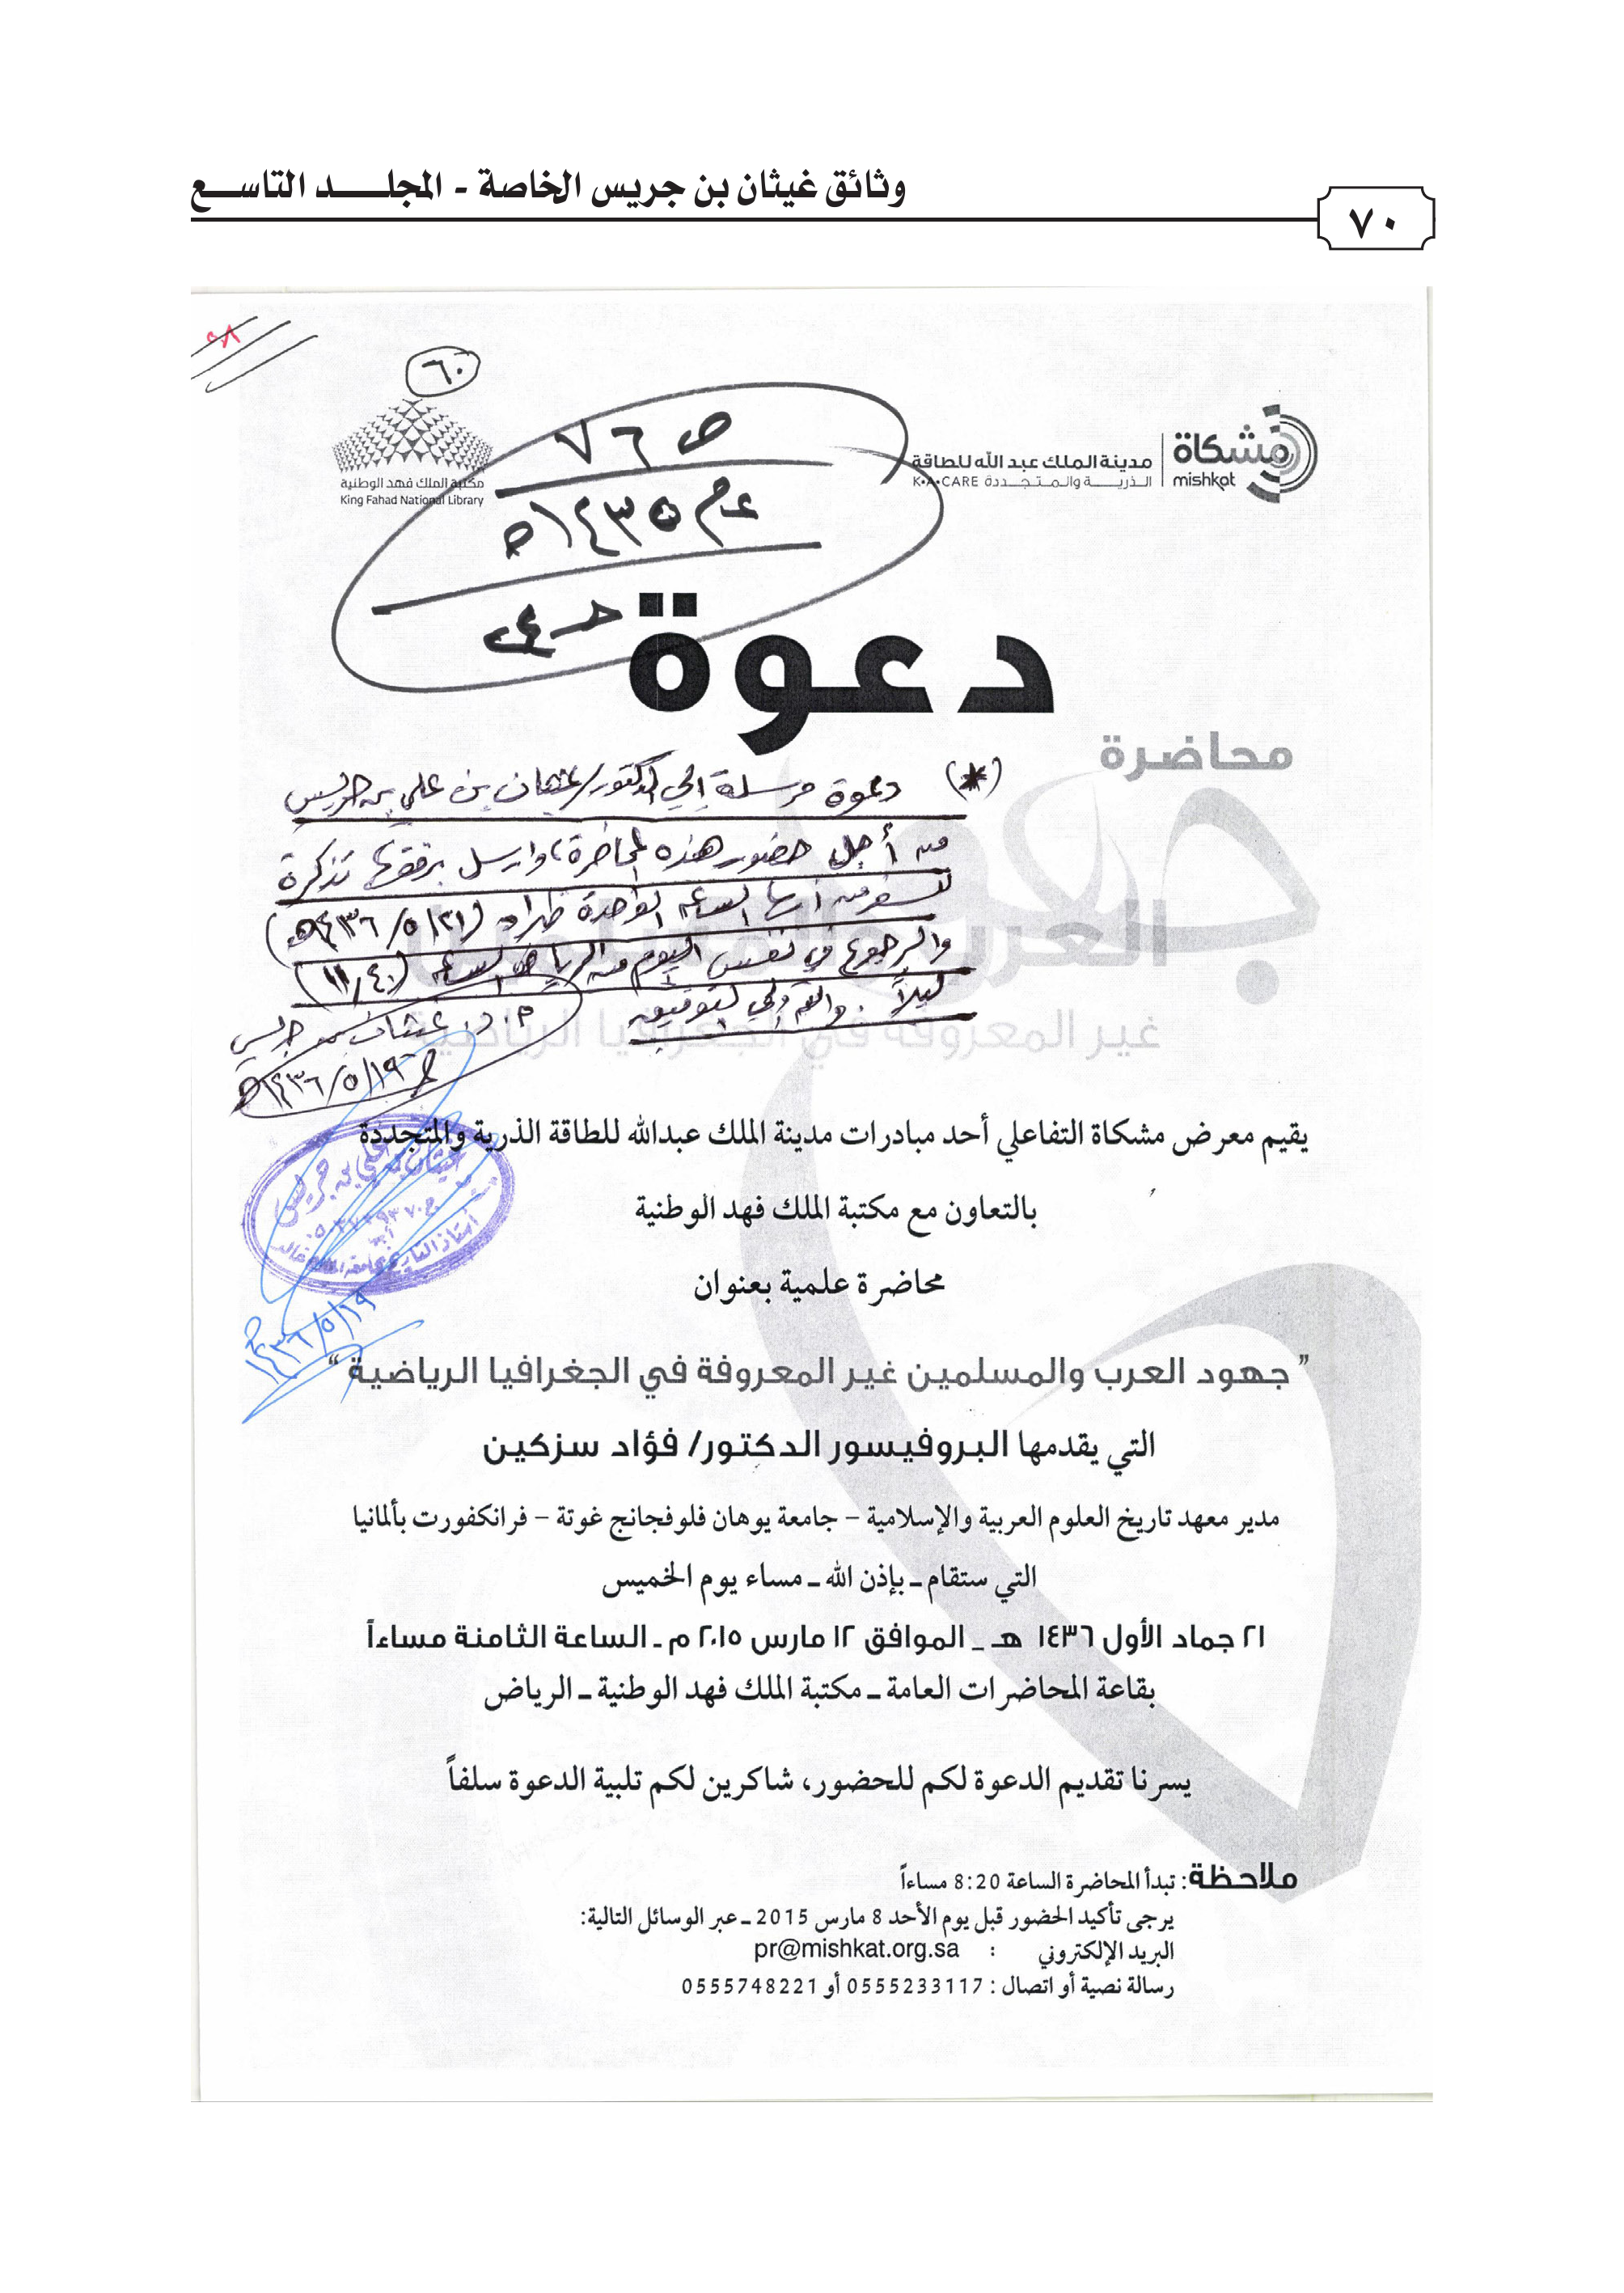 وثائق غيثان بن جريس الخاصة - المجلـــــد التاســـع
٧٠
٦٠
ص ٧٦
عام ١٤٣٥هـ
مكتبة الملك فهد الوطنية
King Fahad National Library
مشكاة
mishkat
مدينة الملك عبد الله للطاقة
الـذريـــة والـمـتـجـــددة K•A•CARE
دعوة
محاضرة
(*) دعوة مرسلة إلى الدكتور/ غيثان بن علي بن جريس
من أجل حضور هذه المحاضرة، وارسل برفقها تذكرة
للسفر من أبها الساعة الواحدة ظهراً (٢١/٥/١٤٣٦هـ)
والرجوع في نفس اليوم من الرياض الساعة (١١,٤٠)
ليلاً. والله ولي التوفيق
أ. د. غيثان بن جريس
١٩/٥/١٤٣٦هـ
غير المعروفة في الجغرافيا الرياضية
يقيم معرض مشكاة التفاعلي أحد مبادرات مدينة الملك عبدالله للطاقة الذرية والمتجددة
بالتعاون مع مكتبة الملك فهد الوطنية
محاضرة علمية بعنوان
١٩/٥/١٤٣٦
” جهود العرب والمسلمين غير المعروفة في الجغرافيا الرياضية “
التي يقدمها البروفيسور الدكتور/ فؤاد سزكين
مدير معهد تاريخ العلوم العربية والإسلامية – جامعة يوهان فلوفجانج غوتة – فرانكفورت بألمانيا
التي ستقام ـ بإذن الله ـ مساء يوم الخميس
٢١ جماد الأول ١٤٣٦ هـ ـ الموافق ١٢ مارس ٢٠١٥ م ـ الساعة الثامنة مساءاً
بقاعة المحاضرات العامة ـ مكتبة الملك فهد الوطنية ـ الرياض
يسرنا تقديم الدعوة لكم للحضور، شاكرين لكم تلبية الدعوة سلفاً
ملاحظة: تبدأ المحاضرة الساعة 8:20 مساءاً
يرجى تأكيد الحضور قبل يوم الأحد 8 مارس 2015 ـ عبر الوسائل التالية:
البريد الإلكتروني : pr@mishkat.org.sa
رسالة نصية أو اتصال : 0555233117 أو 0555748221